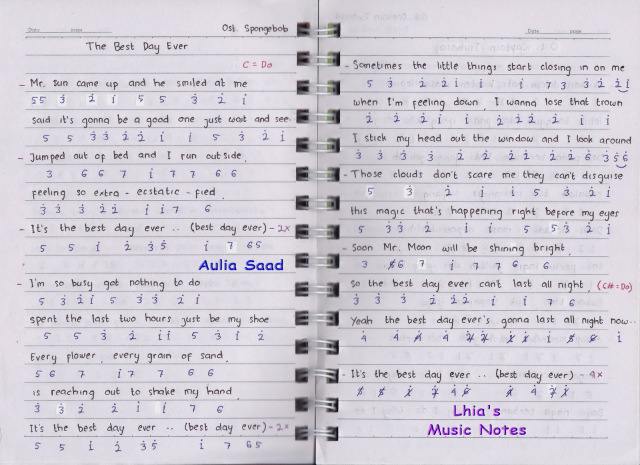 Ost. Spongebob
The Best Day Ever
C = Do
- Mr. sun came up and he smiled at me
55 3 2 i 5 5 3 2 i
said it's gonna be a good one just wait and see
5 5 3 3 2 2 i i 5 3 2 i
- Jumped out of bed and I run outside,
3 6 6 7 i 7 7 6 6
feeling so extra - ecstatic - fied,
3 3 3 2 2 i i 7 6
- It's the best day ever .. (best day ever) - 2x
5 5 i 2 3 5 i 7 6 5
Aulia Saad
- I'm so busy got nothing to do
5 3 2 i 5 3 3 2 i
spent the last two hours just be my shoe
5 5 3 2 i i 5 3 i 2
Every flower, every grain of sand,
5 6 7 i 7 7 6 6
is reaching out to shake my hand,
3 3 2 2 i i 7 6
It's the best day ever .. (best day ever) - 2x
5 5 i 2 3 5 i 7 6 5
Date page
- Sometimes the little things start closing in on me
5 3 2 2 i i i i 7 3 3 2 2 i
when I'm feeling down, I wanna lose that trown
2 2 2 i i 2 2 2 2 i i
I stick my head out the window and I look around
3 3 3 3 2 2 2 2 2 2 6 3 5 6
- Those clouds don't scare me they can't disguise
5 3 2 i i 5 3 2 i
this magic that's happening right before my eyes
5 3 3 2 i i 5 5 3 2 i
- Soon Mr. Moon will be shining bright,
3 6 7 i 7 7 6 6
so the best day ever can't last all night, (C# = Do)
3 3 3 2 2 2 i i 7 6
Yeah the best day ever's gonna last all night now..
- It's the best day ever .. (best day ever) - 4x
Lhia's
Music Notes